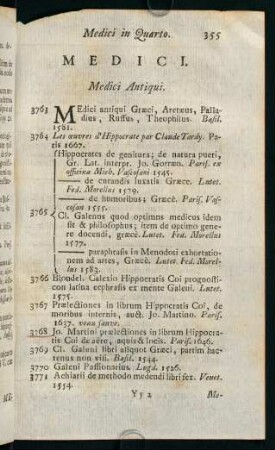 Medici in Quarto. 355
MEDICI.
Medici Antiqui.
3763 MEdici antiqui Græci, Aretæus, Palla-
dius, Ruffus, Theophilus. Basil.
1581.
3764 Les œuvres d'Hippocrate par Claude Tardy. Pa-
ris 1667.
Hippocrates de genitura; de natura pueri,
Gr. Lat. interpr. Jo. Gorræo. Paris. ex
officina Mich. Vascosani 1545.
——— de curandis luxatis Græce. Lutet.
Fed. Morellus 1579.
——— de humoribus; Græcè. Paris. Vas-
cosan 1555.
3765 Cl. Galenus quod optimus medicus idem
sit & philosophus; item de optimo gene-
re docendi, græcè. Lutet. Fed. Morellus
1577.
——— paraphrasis in Menodoti exhortatio-
nem ad artes, Græcè. Lutet. Fed. Morel-
lus 1583.
3766 Hippocratis Coi prognosti-
con latina ecphrasis ex mente Galeni. Lutet.
1575.
3767 Prælectiones in librum Hippocratis Coi, de
morbis internis, auct. Jo. Martino. Paris.
1637. veau fauve.
3768 Jo. Martini prælectiones in librum Hippocra-
tis Coi de aëre, aquis & locis. Paris. 1646.
3769 Cl. Galeni libri aliquot Græci, partim hac-
tenus non visi. Basil. 1544.
3770 Galeni Passionarius. Lugd. 1526.
3771 de methodo medendi libri sex. Venet.
1554.
Yy 2 Me-